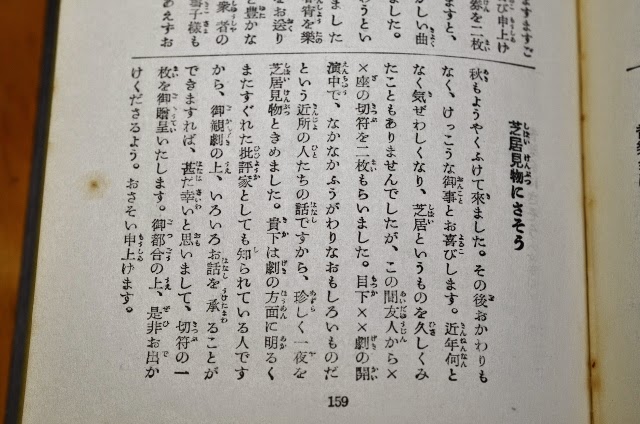 ますますご
び申上け
券を二枚
ますと、
かしい曲
ました。
うとい
ました
春宵を樂
をお送り
と豊かな
衆者の
子様も
あえずお
芝居見物にさそう
秋もようやくふけて來ました。その後おかわりも
なく、けっこうな御事とお喜びします。近年何と
なく気ぜわしくなり、芝居というものを久しくみ
たこともありませんでしたが、この間友人から×
×座の切符を二枚もらいました。目下××劇の開
演中で、なかなかふうがわりなおもしろいものだ
という近所の人たちの話ですから、珍しく一夜を
芝居見物ときめました。貴下は劇の方面に明るく
またすぐれた批評家としても知られている人です
から、御観劇の上、いろいろお話を承ることが
できますれば、甚だ幸いと思いまして、切符の一
枚を御贈呈いたします。御都合の上、是非お出か
けくださるよう。おさそい申上げます。
159